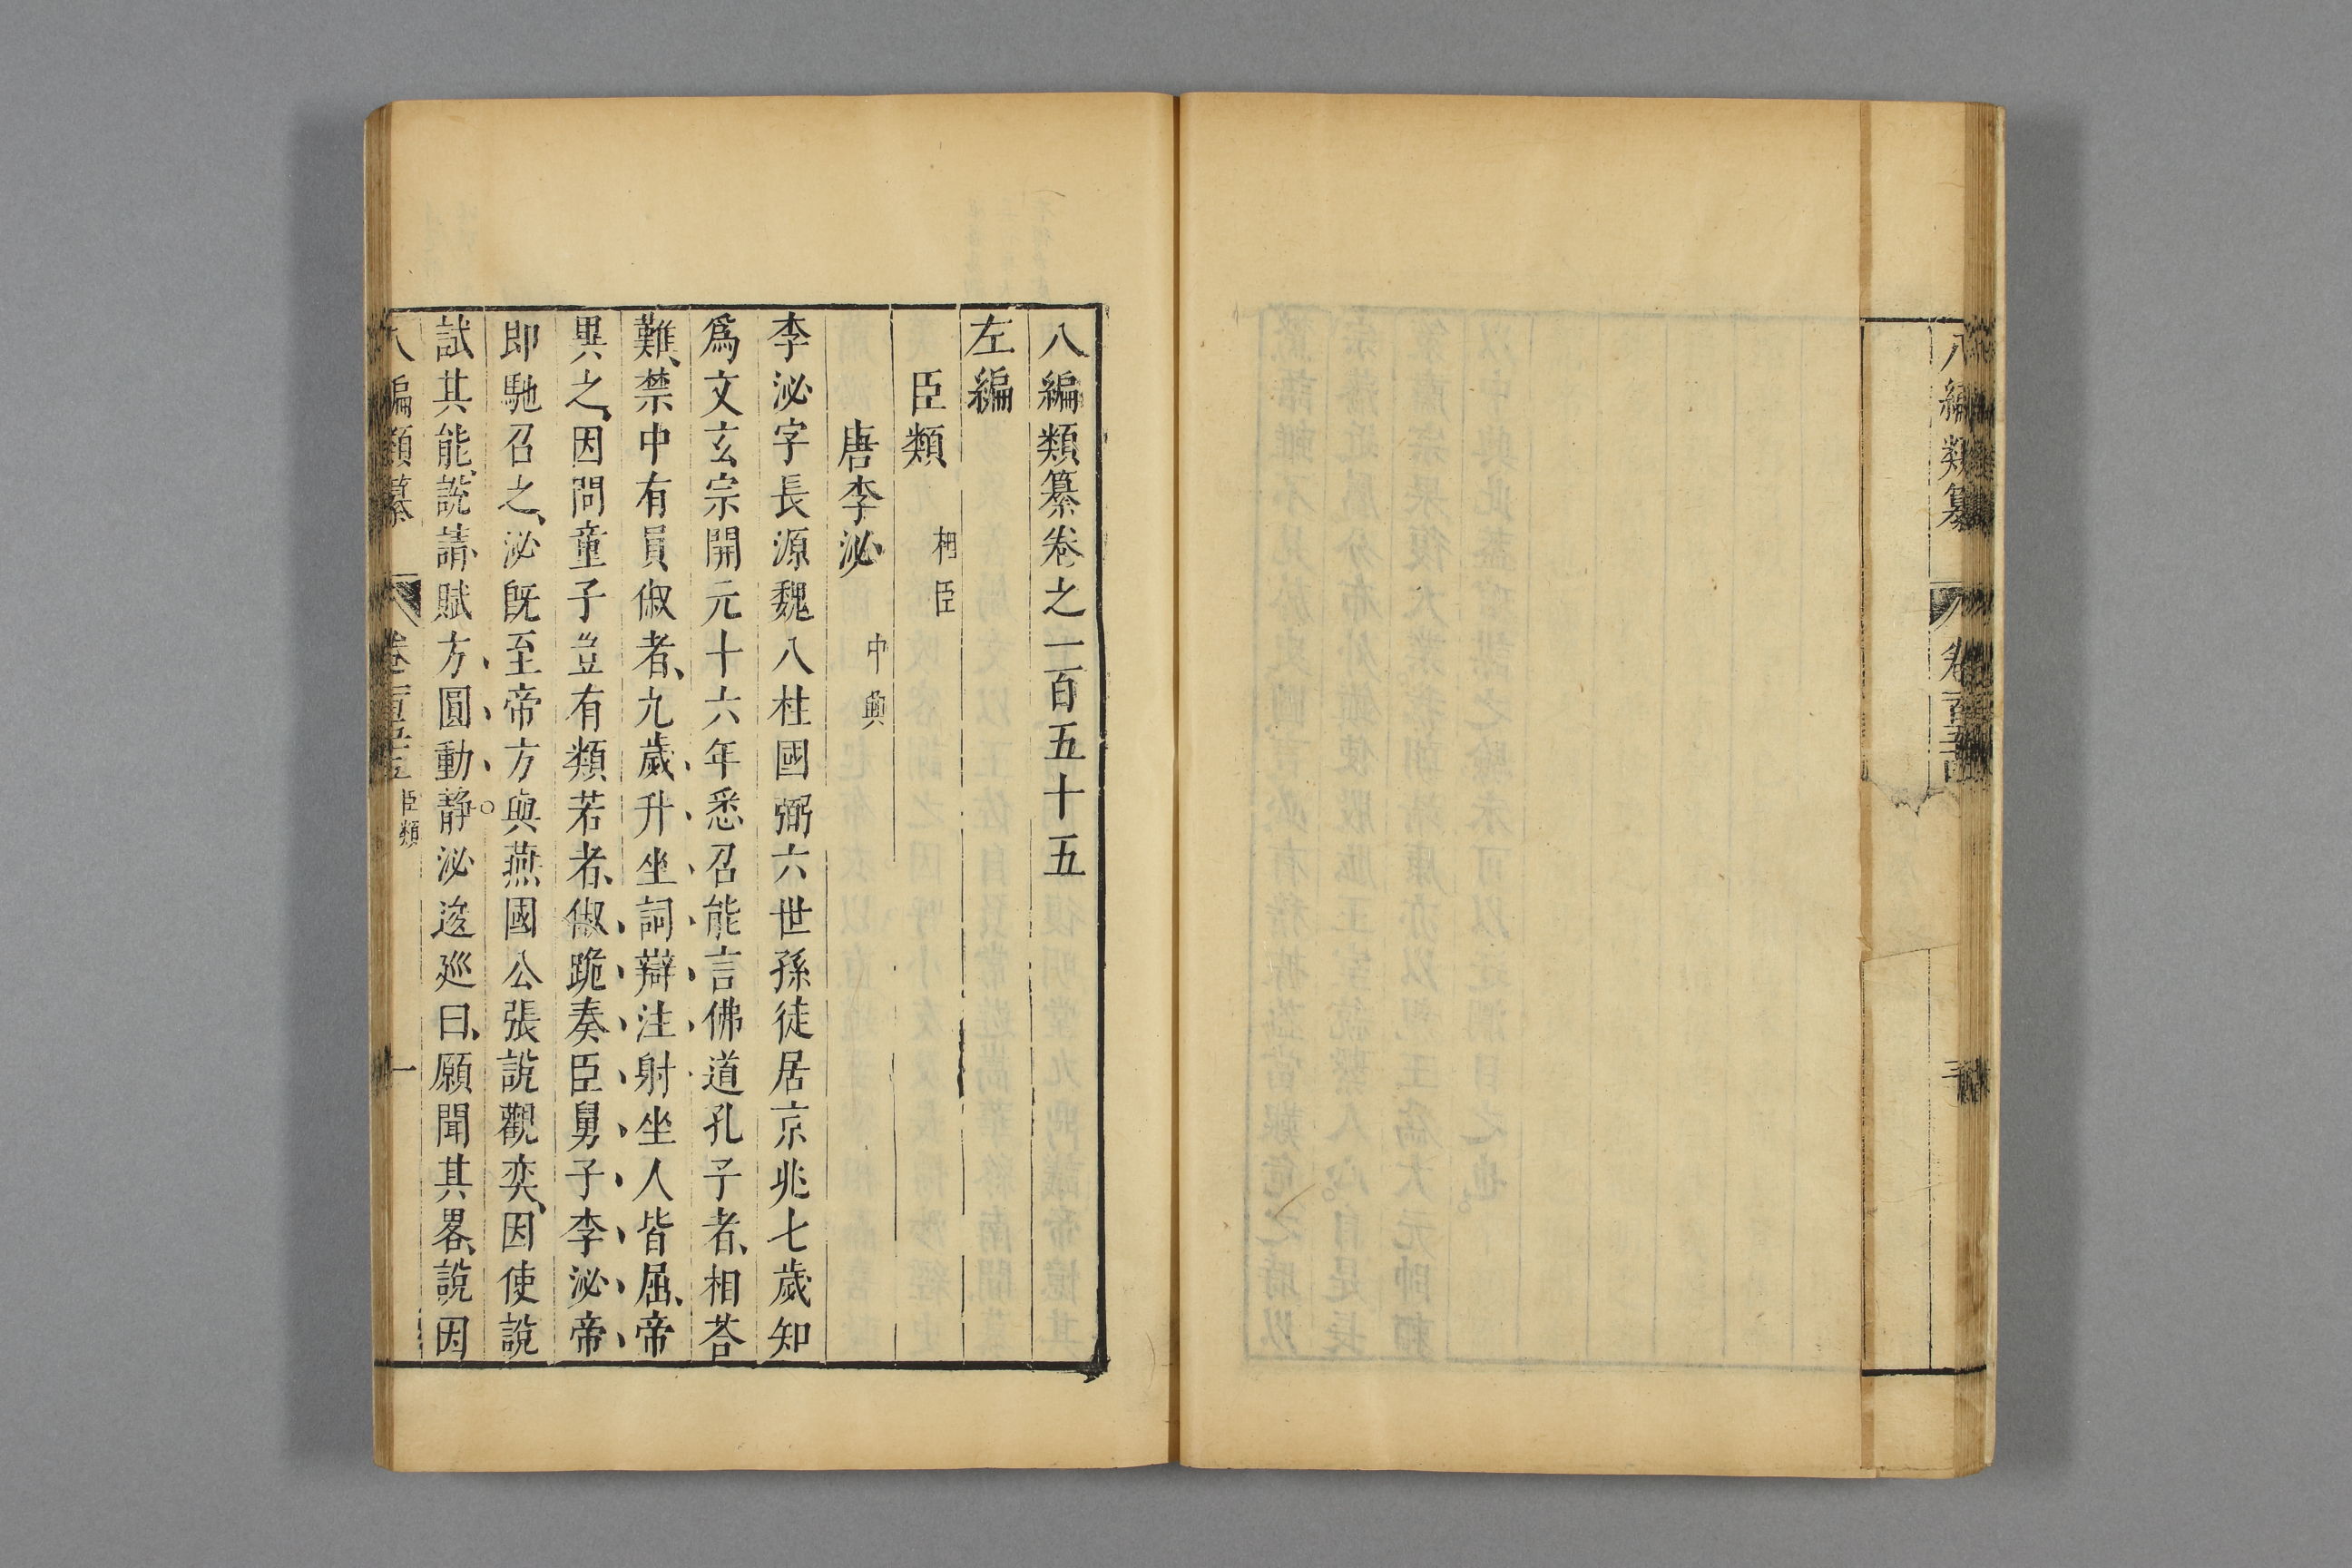 八編類纂
八編類纂卷之一百五十五
左編
臣類 相臣
唐李泌 中興
李泌字長源魏八柱國弼六世孫徒居京兆七歲知
爲文玄宗開元十六年悉召能言佛道孔子者、相荅
難、禁中有員俶者、九歲升坐詞辯注射坐人皆屈、帝
異之、因問童子豈有類若者、俶跪奏臣舅子李泌帝
即馳召之、泌旣至帝方與燕國公張說觀奕、因使說
試其能、說請賦方圓動靜泌逡巡曰、願聞其畧、說因
八編類纂 卷一百五十五 臣類 一